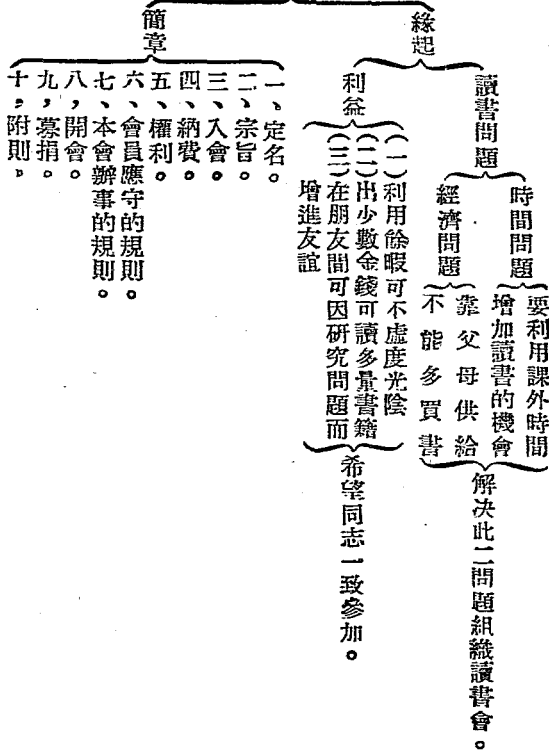 緣起
讀書問題
時間問題
要利用課外時間
增加讀書的機會
經濟問題
靠父母供給
不能多買書
解決此二問題組織讀書會。
利益
(一)利用餘暇可不虛度光陰
(二)出少數金錢可讀多量書籍
(三)在朋友間可因研究問題而
增進友誼
希望同志一致參加。
簡章
一、定名。
二、宗旨。
三、入會。
四、納費。
五、權利。
六、會員應守的規則。
七、本會辦事的規則。
八，開會。
九，募捐。
十，附則。